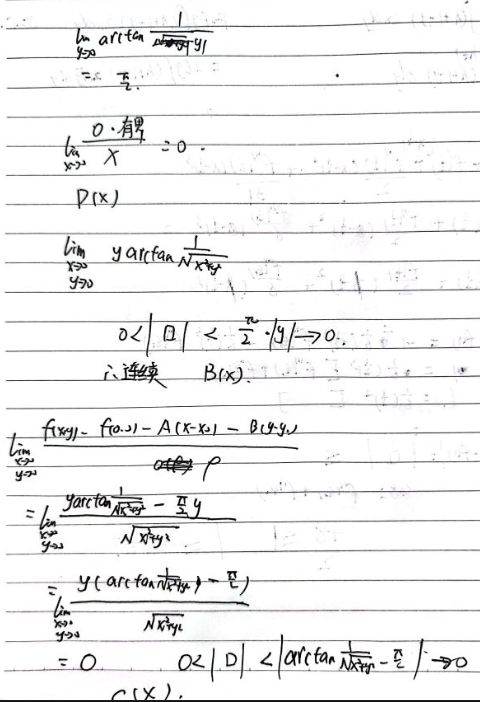 lim y→0 arctan 1/|y|
= π/2.
lim x→0 0·有界/x = 0.
D(x)
lim x→0 y→0 y arctan 1/√x²+y²
0<|□| < π/2·|y|→0.
∴连续 B(x).
lim x→0 y→0 f(x,y) - f(0,0) - A(x-x₀) - B(y-y₀)/ρ
= lim x→0 y→0 yarctan 1/√x²+y² - π/2 y/√x²+y²
= lim x→0 y→0 y(arctan 1/√x²+y² - π/2)/√x²+y²
= 0 0<|□| <|arctan 1/√x²+y² - π/2| →0
C(x).